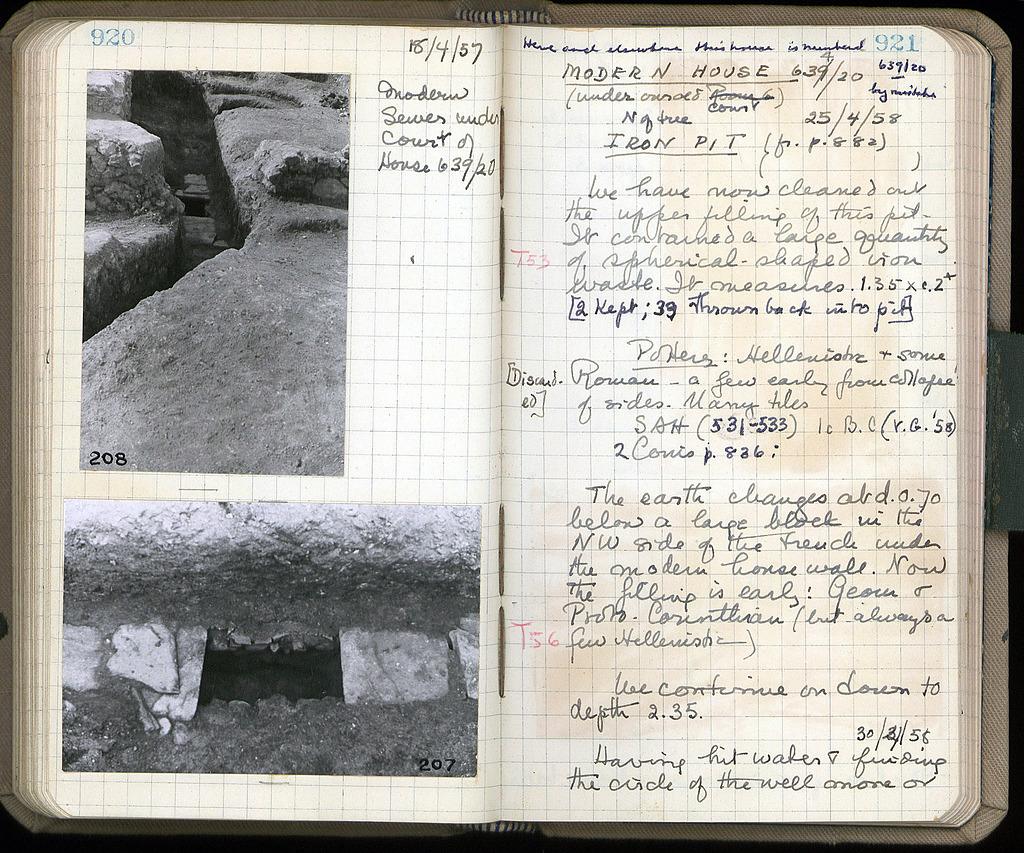 920
18/4/57
Modern
Sewer under
Court of
House 639/20
208
207
Here and elsewhere this house is numbered
921
639/20
by mistake
MODERN HOUSE 639/20
(under
court
N of tree
25/4/58
IRON PIT (fr. p. 882)
We have now cleaned out
the upper filling of this pit.
It contained a large quantity
T53
of spherical-shaped iron
waste. It measures. 1.35 x c. 2+
[2 Kept; 39 Thrown back into pit]
Pottery: Hellenistic + some
[Discard-
ed]
Roman - a few early from collapse
of sides. Many tiles
SAH (531-533) 1c B.C (V.G. '58)
2 Coins p. 836:
The earth changes at d. 0.70
below a large block in the
NW side of the trench under
the modern house wall. Now
the filling is early: Geom &
Proto-Corinthian (but always a
T56
few Hellenistic)
We continue on down to
depth 2.35.
Having hit water & finding
the circle of the well more or